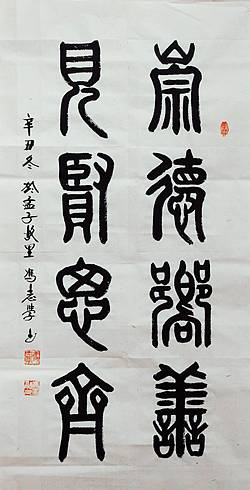 崇德嚮善
見賢思齊
辛丑冬於孟子故里馮志學書